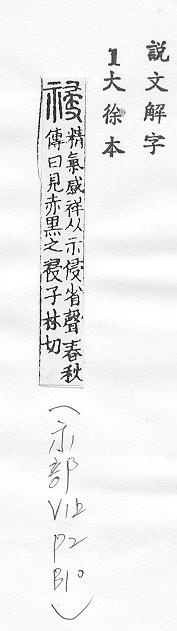 説文解字
1大徐本
祲
精氣感祥从示侵省聲春秋
傳曰見赤黑之祲子林切
(示部 V1上 P2 B10)